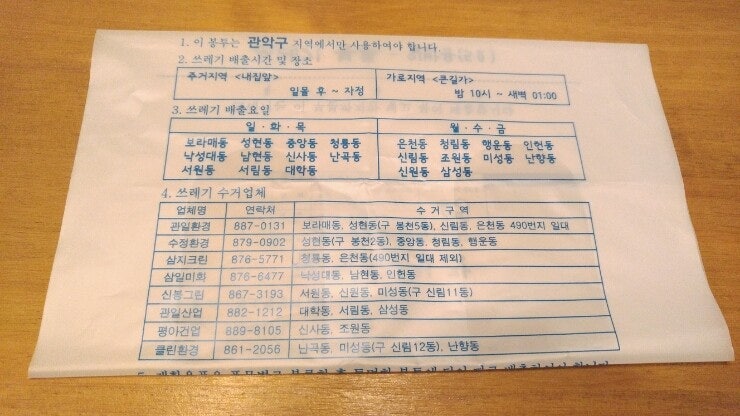 1. 이 봉투는 관악구 지역에서만 사용하여야 합니다.
2. 쓰레기 배출시간 및 장소
주거지역 <내집앞> 가로지역 <큰길가>
일몰 후 ~ 자정 밤 10시 ~ 새벽 01:00
3. 쓰레기 배출요일
일·화·목 월·수·금
보라매동 성현동 중앙동 청룡동 은천동 청림동 행운동 인헌동
낙성대동 남현동 신사동 난곡동 신림동 조원동 미성동 난향동
서원동 서림동 대학동 신원동 삼성동
4. 쓰레기 수거업체
업체명 연락처 수거구역
관일환경 887-0131 보라매동, 성현동(구 봉천5동), 신림동, 은천동 490번지 일대
수정환경 879-0902 성현동(구 봉천2동), 중앙동, 청림동, 행운동
삼지크린 876-5771 청룡동, 은천동(490번지 일대 제외)
삼일미화 876-6477 낙성대동, 남현동, 인헌동
신봉그린 867-3193 서원동, 신원동, 미성동(구 신림11동)
관일산업 882-1212 대학동, 서림동, 삼성동
평아건업 889-8105 신사동, 조원동
클린환경 861-2056 난곡동, 미성동(구 신림12동), 난향동